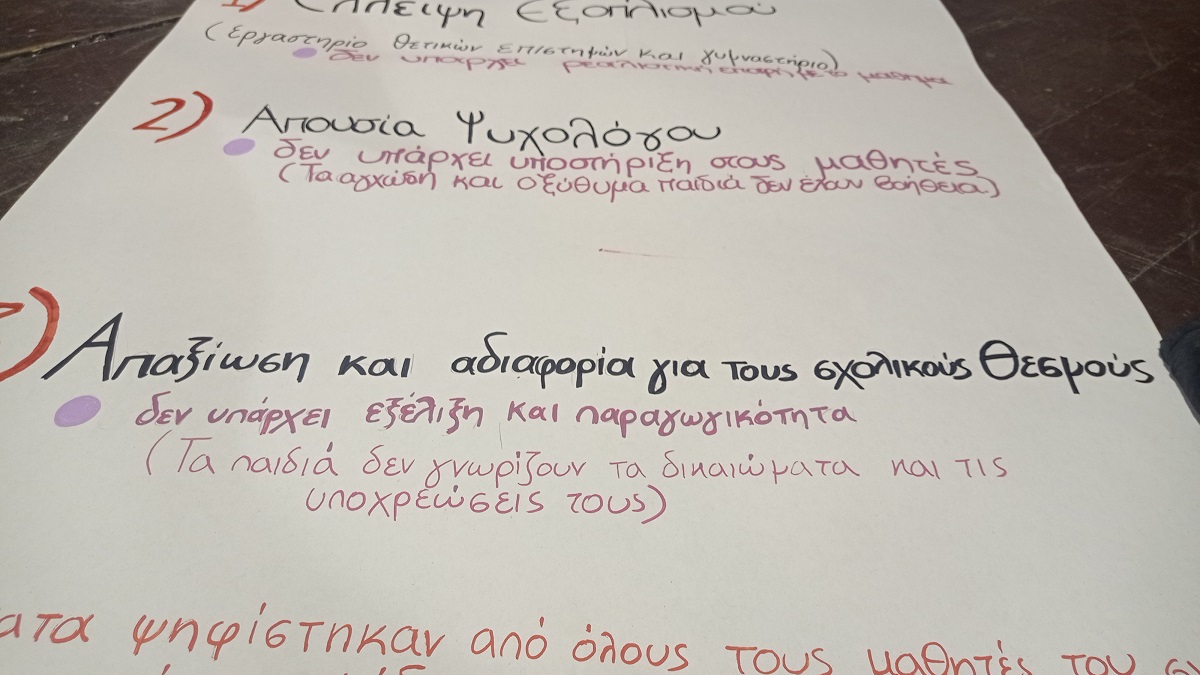 1) Έλλειψη Εξοπλισμού
(εργαστήριο θετικών επιστημών και γυμναστήριο)
δεν υπάρχει ρεαλιστική επαφή με το μάθημα
2) Απουσία Ψυχολόγου
δεν υπάρχει υποστήριξη στους μαθητές
(Τα αγχώδη και οξύθυμα παιδιά δεν έχουν βοήθεια)
) Απαξίωση και αδιαφορία για τους σχολικούς Θεσμούς
δεν υπάρχει εξέλιξη και παραγωγικότητα
(Τα παιδιά δεν γνωρίζουν τα δικαιώματα και τις
υποχρεώσεις τους)
ατα ψηφίστηκαν από όλους τους μαθητές του